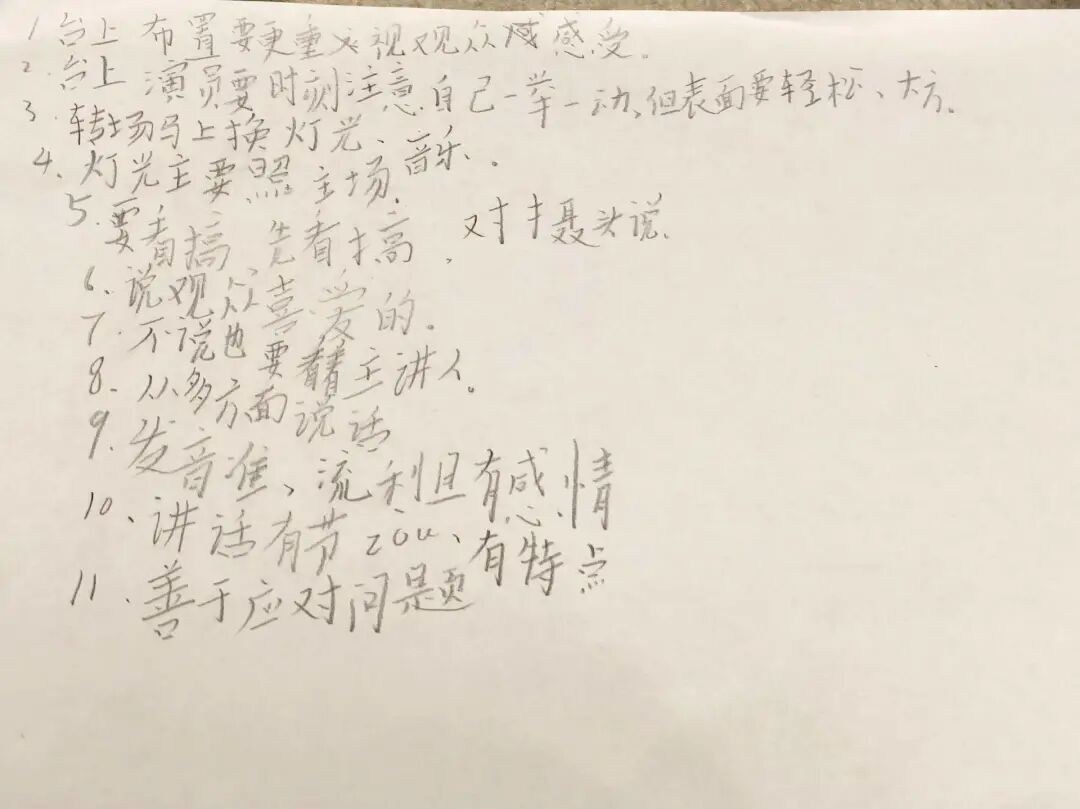 1 台上 布置要更重视观众感受。
2. 台上 演员要时刻注意自己一举一动、但表面要轻松、大方。
3. 转场马上换灯光、音乐、。
4、灯光主要照主场.
5. 要看搞 先看搞. 对扌聂头说、
6、说观众喜爱的.
7. 不说也要看主讲人。
8. 从多方面说话
9. 发音准、流利且有感情
10、讲话有节zòu、有特点
11. 善于应对问题